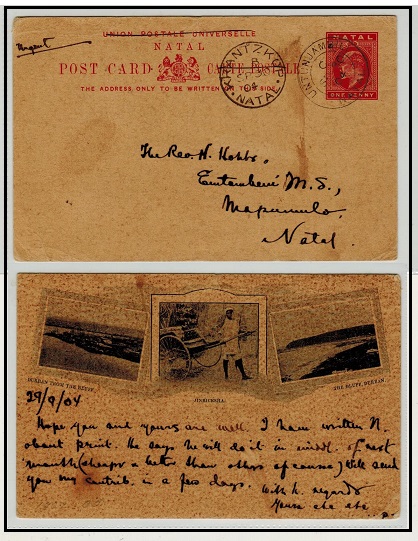 UNION POSTALE UNIVERSELLE
NATAL
POST CARD CARTE POSTALE
THE ADDRESS ONLY TO BE WRITTEN SIDE
Urgent
KRANTZKOP
NATAL
NATAL
ONE PENNY
The Rev. N. Hobbs,
M.S.,
Mapumulo,
Natal.
DURBAN FROM THE BEREA
JINRICKSHA
THE BLUFF, DURBAN
29/9/04
Hope you and yours are well. I have written N.
about print. He says he will do it in midd. of next
month (cheaper & better than others of course) Will send
you my contrib. in a few days. With k. regards
Yours